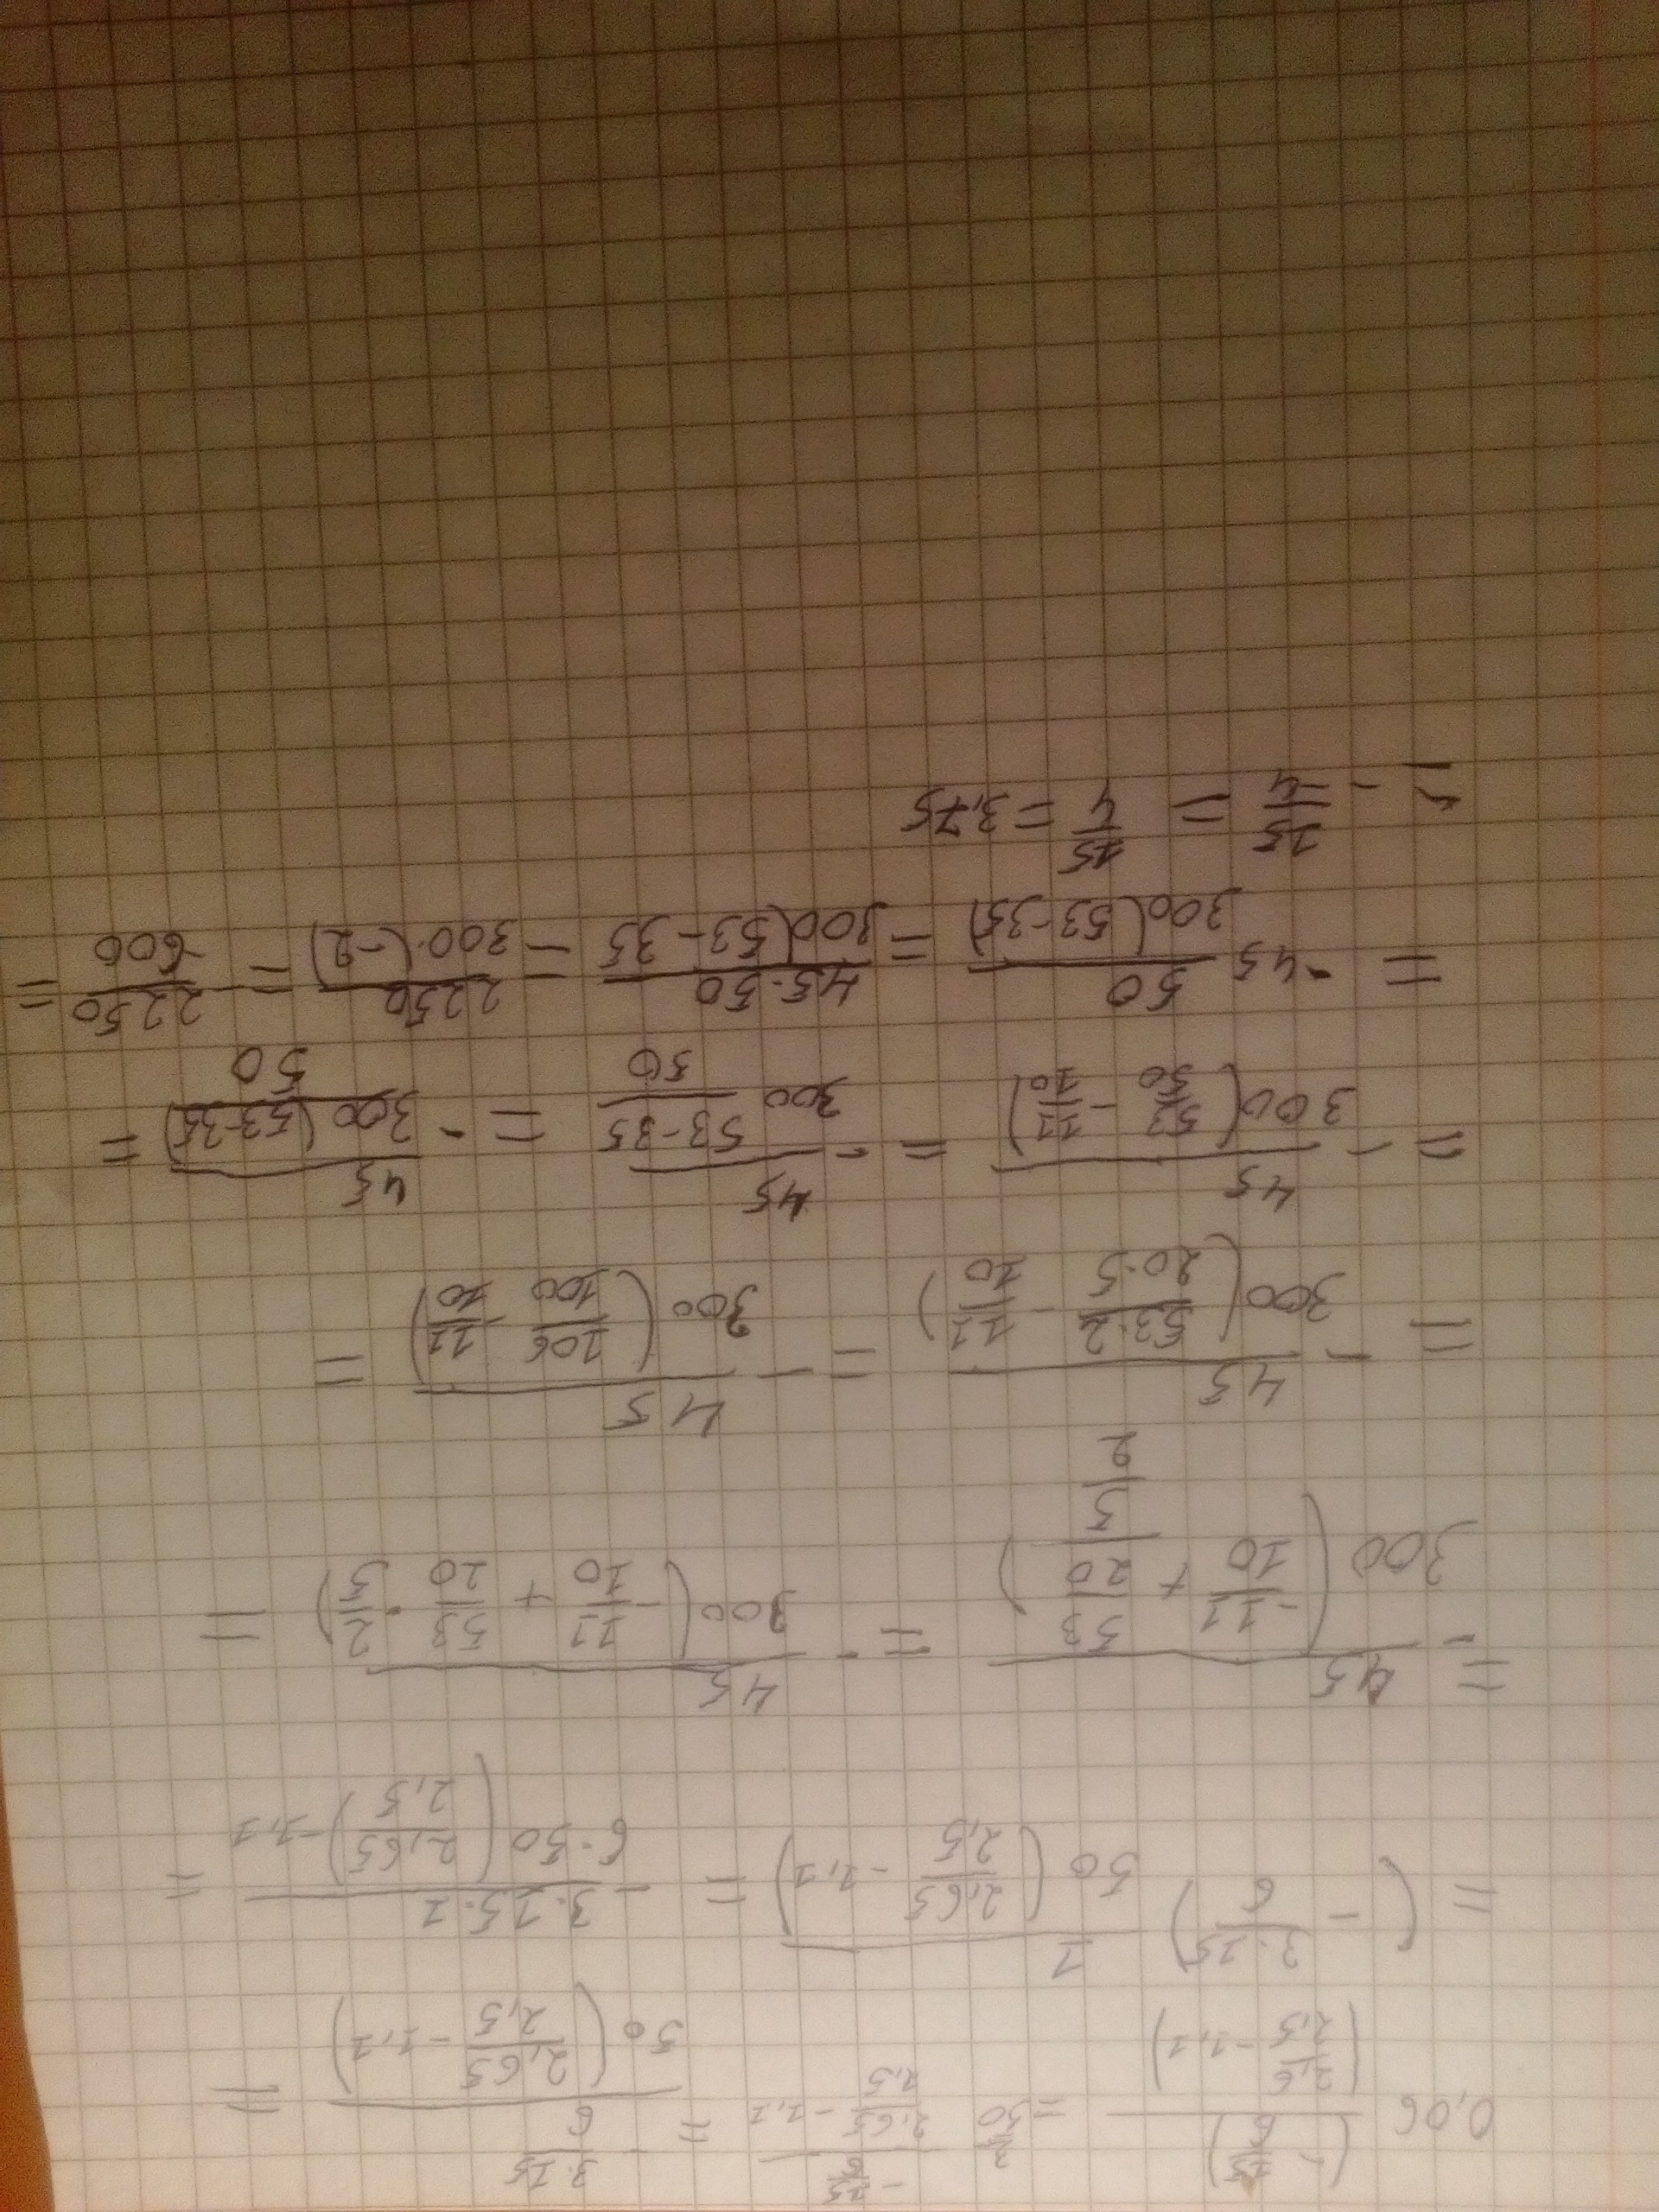 0,06 (-15/6)/(2,6/2,5 - 1,1) = 3/50 (-15/6)/(2,65/2,5 - 1,1) = -(3·15/6)/(50(2,65/2,5 - 1,1)) =
= (-3·15/6) 1/(50(2,65/2,5 - 1,1)) = -(3·15·1)/(6·50(2,65/2,5) - 1,1) =
= -45/(300(-11/10 + (53/20)/(5/2))) = -45/(300(-11/10 + 53/20 · 2/5)) =
= -45/(300(53·2/20·5 - 11/10)) = -45/(300(106/100 - 11/10)) =
= -45/(300(53/50 - 11/10)) = -45/(300 (53-35)/50) = -45/(300(53-35)/50) =
= -45 50/(300(53-35)) = 45·50/(300(53-35 - 2250/(300·(-2)) = -2250/-600 =
= -15/-4 = 15/4 = 3,75